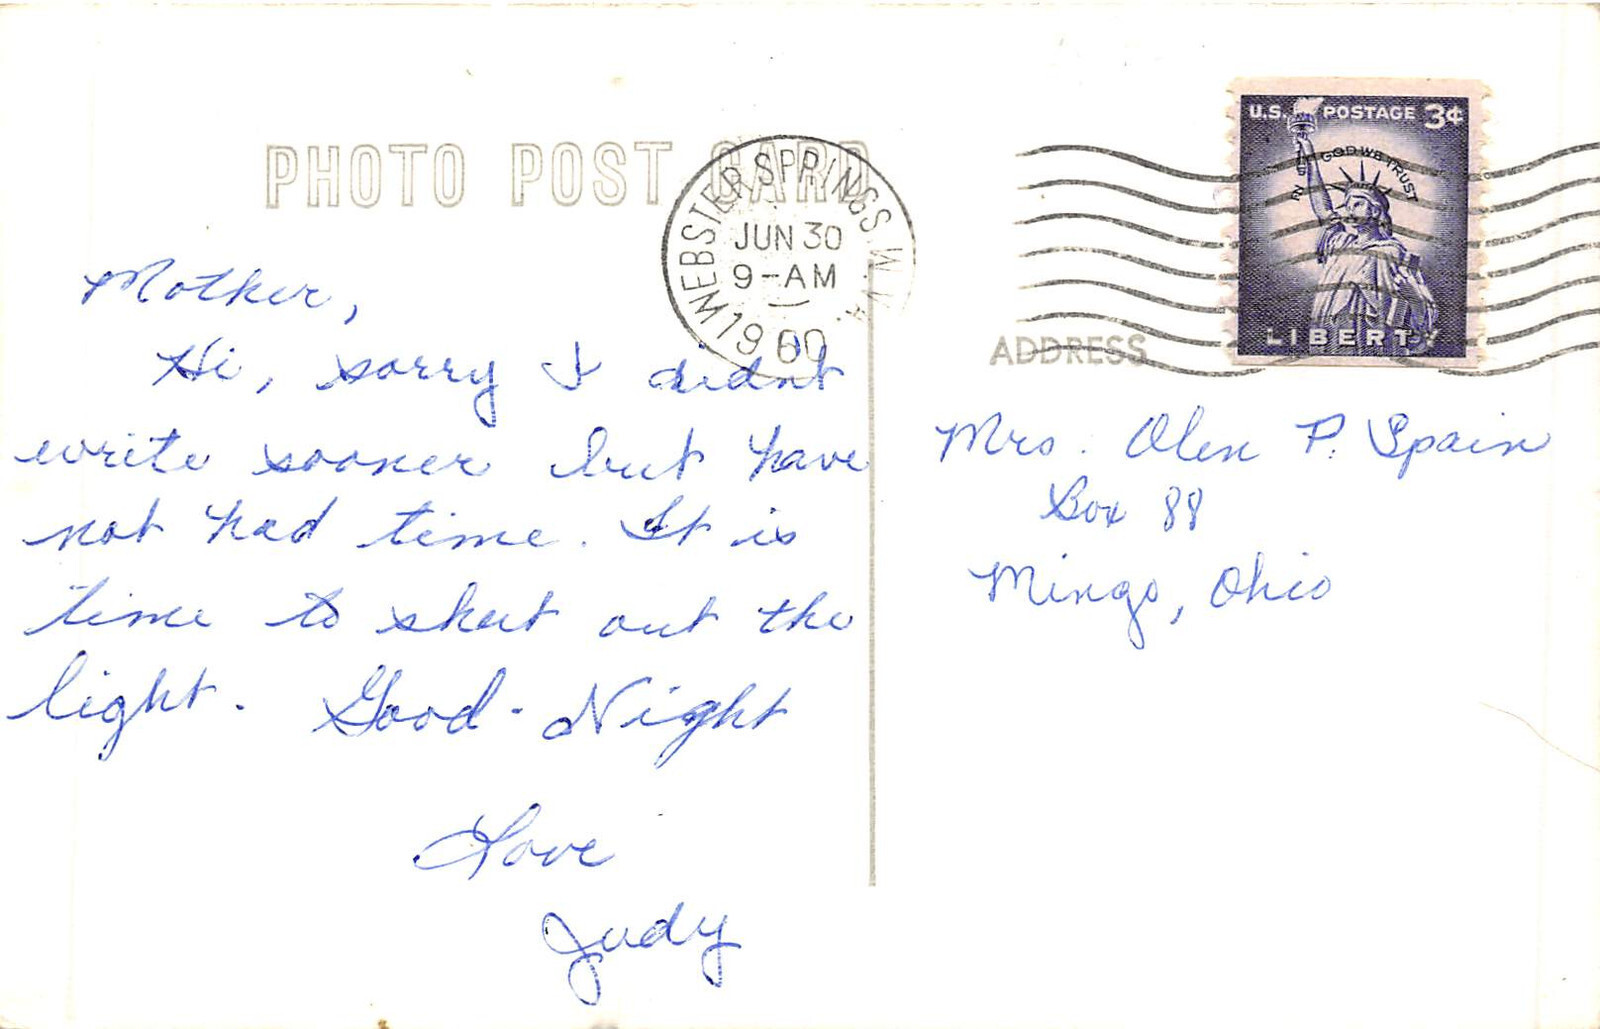 PHOTO POST CARD
WEBSTER SPRINGS W.VA.
JUN 30
9-AM
1960
U.S. POSTAGE 3¢
IN GOD WE TRUST
LIBERTY
ADDRESS
Mother,
Hi, sorry I didnt
write sooner but have
not had time. It is
time to shut out the
light. Good-Night
Love
Judy
Mrs. Olen P. Spain
Box 88
Mingo, Ohio